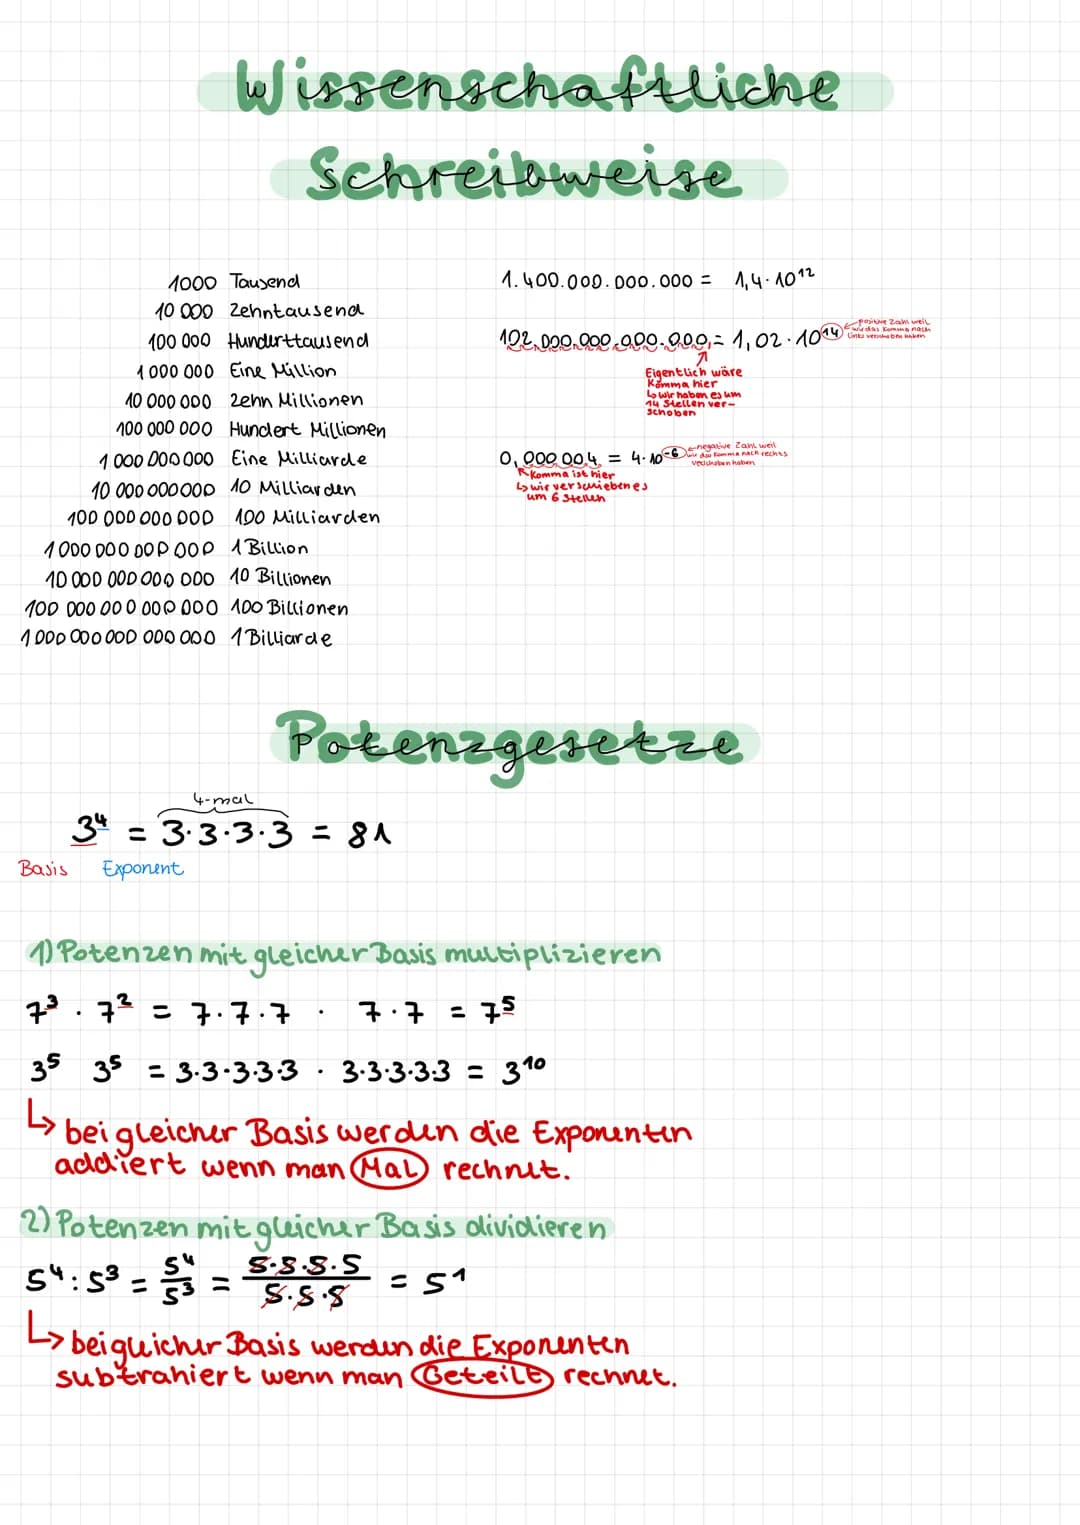 Wissenschaftliche
Schreibweise
1000 Tausend
10 000 Zehntausend
100 000 Hunderttausend
1 000 000 Eine Million
10 000 000 Zehn Millionen
100 000 000 Hundert Millionen
1 000 000 000 Eine Milliarde
10 000 000 000 10 Milliarden
100 000 000 000 100 Milliarden
1 000 000 000 000 1 Billion
10 000 000 000 000 10 Billionen
100 000 000 000 000 100 Billionen
1 000 000 000 000 000 1 Billiarde
1.400.000.000.000 = 1,4 · 10¹²
102.000.000.000.000, = 1,02 · 10¹⁴
positive Zahl weil
wir das Komma nach
links verschoben haben
Eigentlich wäre
Komma hier
↳ wir haben es um
14 Stellen ver-
schoben
0,000 004 = 4 · 10⁻⁶
negative Zahl weil
wir das Komma nach rechts
verschoben haben
Komma ist hier
↳ wir verschieben es
um 6 Stellen
Potenzgesetze
4-mal
3⁴ = 3·3·3·3 = 81
Basis Exponent
1) Potenzen mit gleicher Basis multiplizieren
7³ · 7² = 7·7·7 · 7·7 = 7⁵
3⁵ 3⁵ = 3·3·3·3·3 · 3·3·3·3·3 = 3¹⁰
↳ bei gleicher Basis werden die Exponenten
addiert wenn man Mal rechnet.
2) Potenzen mit gleicher Basis dividieren
5⁴ : 5³ = 5⁴/5³ = 5·5·5·5/5·5·5 = 5¹
↳ bei gleicher Basis werden die Exponenten
subtrahiert wenn man Geteilt rechnet.